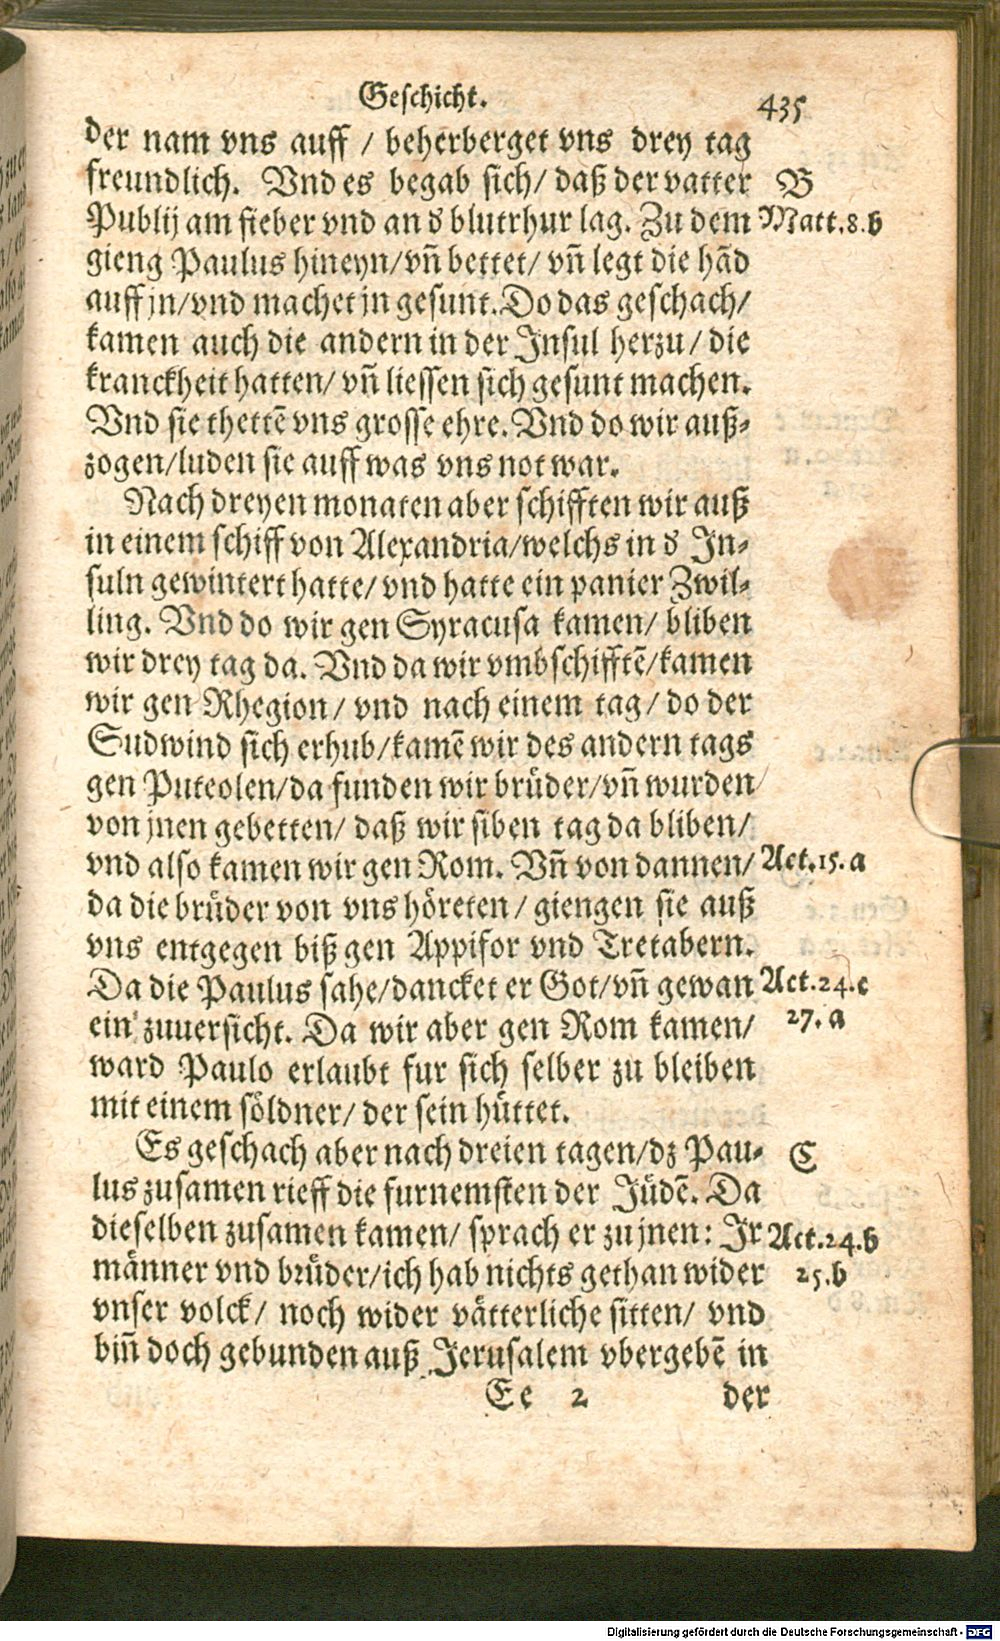 Geschicht. 435
der nam vns auff / beherberget vns drey tag
freundlich. Vnd es begab sich/ daß der vatter B
Publij am fieber vnd an d̕ blutrhur lag. Zu dem Matt.8.b
gieng Paulus hineyn/vñ bettet/ vñ legt die hãd
auff jn/vnd machet jn gesunt. Do das geschach/
kamen auch die andern in der Insul herzu/ die
kranckheit hatten/ vñ liessen sich gesunt machen.
Vnd sie thettẽ vns grosse ehre. Vnd do wir auß-
zogen/luden sie auff was vns not war.
Nach dreyen monaten aber schifften wir auß
in einem schiff von Alexandria/welchs in d̕ In-
suln gewintert hatte/ vnd hatte ein panier Zwil-
ling. Vnd do wir gen Syracusa kamen/ bliben
wir drey tag da. Vnd da wir vmbschifftẽ/kamen
wir gen Rhegion/ vnd nach einem tag/ do der
Sudwind sich erhub/kamẽ wir des andern tags
gen Puteolen/da funden wir brüder/vñ wurden
von jnen gebetten/ daß wir siben tag da bliben/
vnd also kamen wir gen Rom. Vñ von dannen/ Act.15.a
da die brüder von vns höreten/ giengen sie auß
vns entgegen biß gen Appifor vnd Tretabern.
Da die Paulus sahe/dancket er Got/vñ gewan Act.24.c
ein zuuersicht. Da wir aber gen Rom kamen/ 27.a
ward Paulo erlaubt fur sich selber zu bleiben
mit einem söldner/ der sein hüttet.
Es geschach aber nach dreien tagen/dz Pau- C
lus zusamen rieff die furnemsten der Jüdẽ. Da
dieselben zusamen kamen/ sprach er zu jnen: Ir Act.24.b
männer vnd brüder/ich hab nichts gethan wider 25.b
vnser volck/ noch wider vätterliche sitten/ vnd
biñ doch gebunden auß Jerusalem vbergebẽ in
Ee 2 der
Digitalisierung gefördert durch die Deutsche Forschungsgemeinschaft - DFG